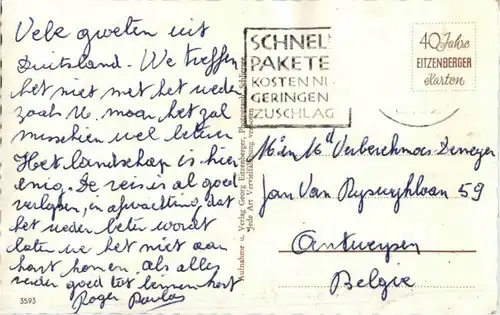 Vele groeten uit
Duitsland. We treffen
het niet met het weder
zoals U, maar het zal
misschien wel beteren
Het landschap is hier
enig. De reis is al goed
verlopen, in afwachting dat
het weder beter wordt
laten we het niet aan
hart komen, als alles
verder goed tot
Roger Paula
3593
Aufnahme u. Verlag Georg Eitzenberger, Photograph, Schliersee
Jede Art Vervielfältigung verboten
SCHNEL
PAKETE
KOSTEN NU
GERINGEN
ZUSCHLAG
40 Jahre
EITZENBERGER
Karten
Jan Van Rijswijcklaan 59
Antwerpen
Belgie